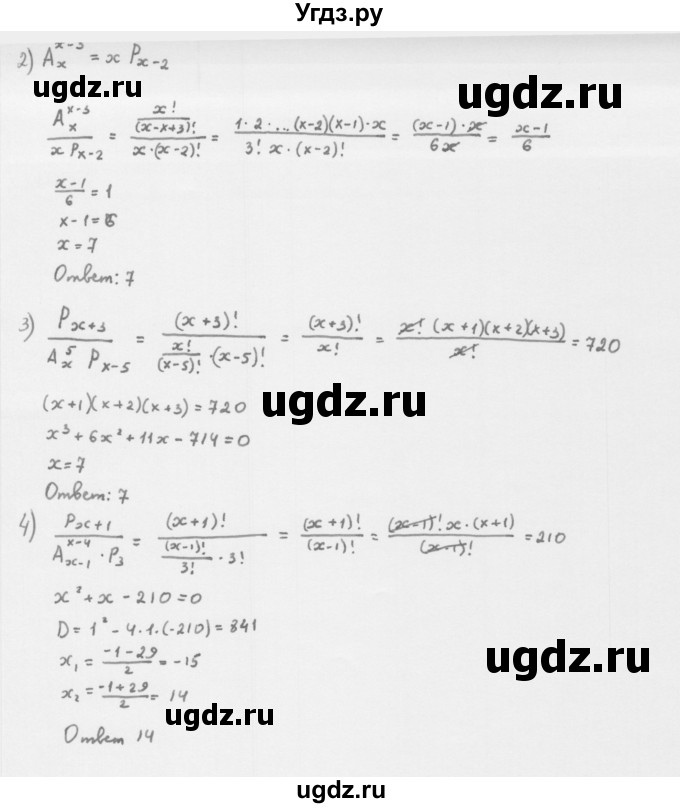 Угдз.ру
2) A_x^{x-3} = x P_{x-2}
ugdz.ru
ugdz.ru
\frac{A_x^{x-3}}{x P_{x-2}} = \frac{\frac{x!}{(x-x+3)!}}{x·(x-2)!} = \frac{1·2·...(x-2)(x-1)·x}{3! x·(x-2)!} = \frac{(x-1)·x}{6x} = \frac{x-1}{6}
\frac{x-1}{6} = 1
x-1=6
x=7
Ответ: 7
3) \frac{P_{x+3}}{A_x^5 P_{x-5}} = \frac{(x+3)!}{\frac{x!}{(x-5)!}·(x-5)!} = \frac{(x+3)!}{x!} = \frac{x! (x+1)(x+2)(x+3)}{x!} = 720
ugdz.ru
(x+1)(x+2)(x+3)=720
x^3+6x^2+11x-714=0
x=7
Ответ: 7
ugdz.ru
4) \frac{P_{x+1}}{A_{x-1}^{x-4}·P_3} = \frac{(x+1)!}{\frac{(x-1)!}{3!}·3!} = \frac{(x+1)!}{(x-1)!} = \frac{(x-1)! x·(x+1)}{(x-1)!} = 210
x^2+x-210=0
D=1^2-4·1·(-210)=841
x_1=\frac{-1-29}{2}=-15
ugdz.ru
x_2=\frac{-1+29}{2}=14
ugdz.ru
Ответ 14
ugdz.ru